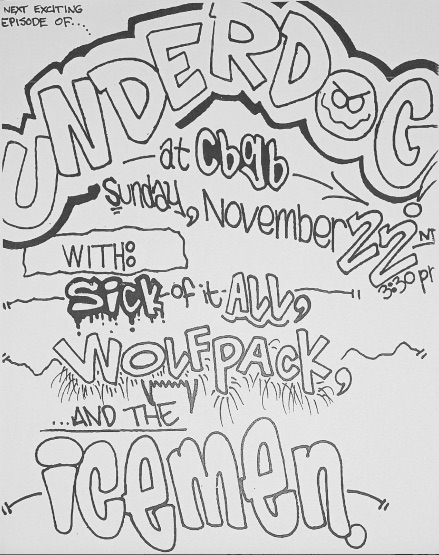 NEXT EXCITING
EPISODE OF....
UNDERDOG
at Cbgb
Sunday, November 22
3:30
WITH:
Sick-of it-ALL,
WOLFPACK,
...AND THE
icemen.